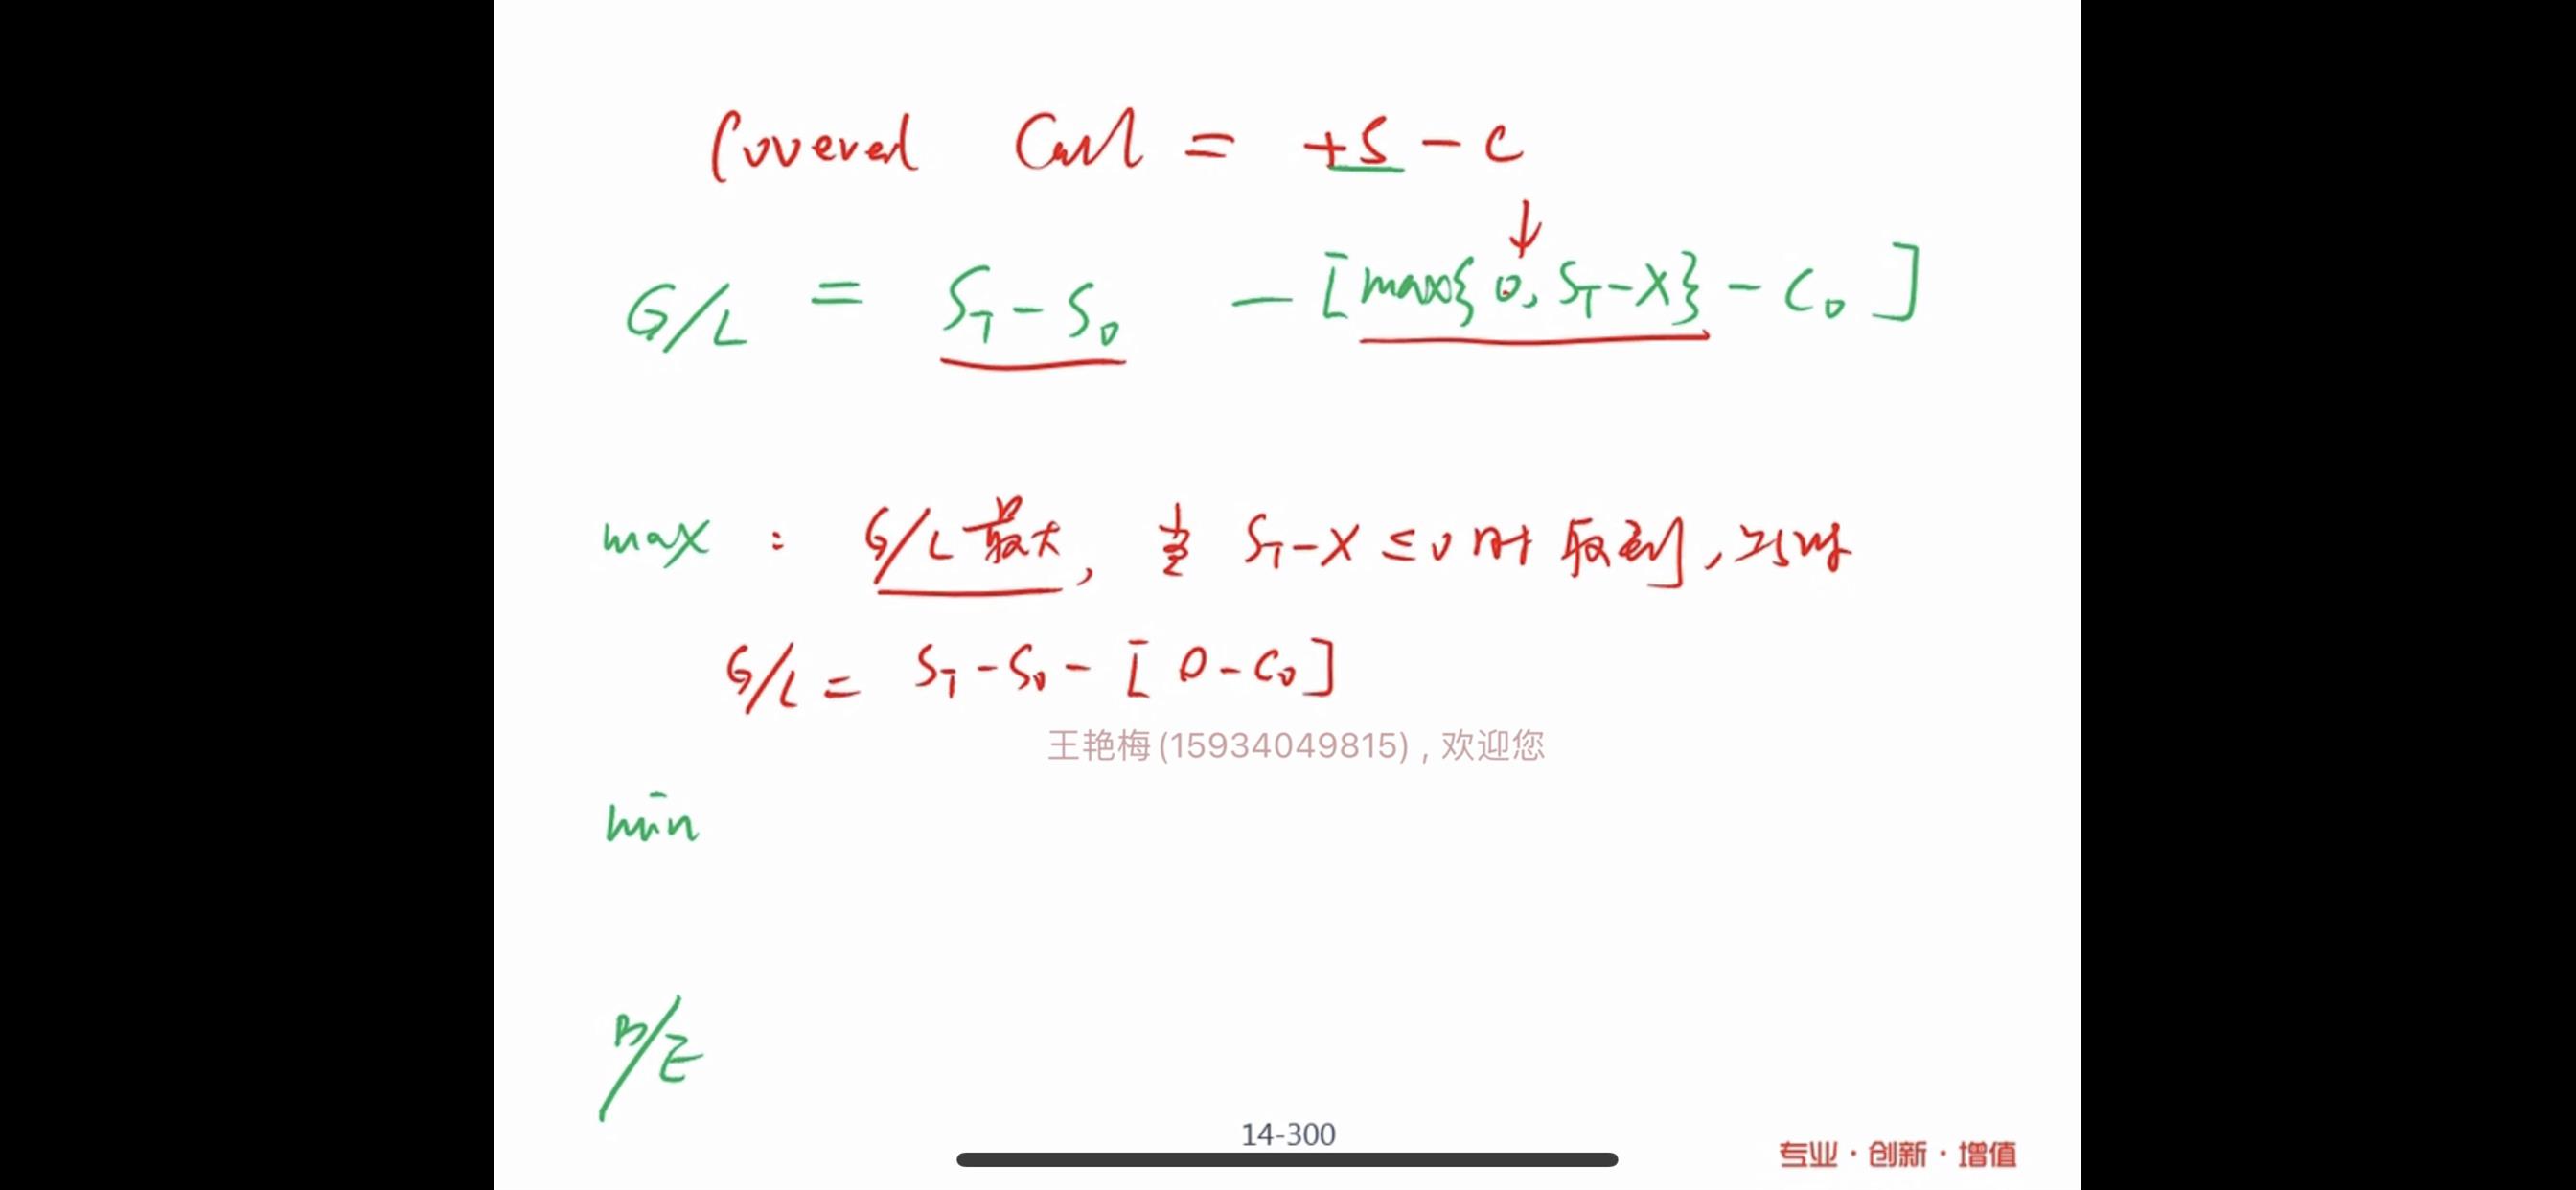 Covered Call = +S - C
G/L = S_T - S_0 - [max{0, S_T - X} - C_0]
max : G/L 最大, 当 S_T - X ≤ 0 时 取到, 此时
G/L = S_T - S_0 - [0 - C_0]
王艳梅(15934049815) , 欢迎您
min
B/E
14-300
专业·创新·增值